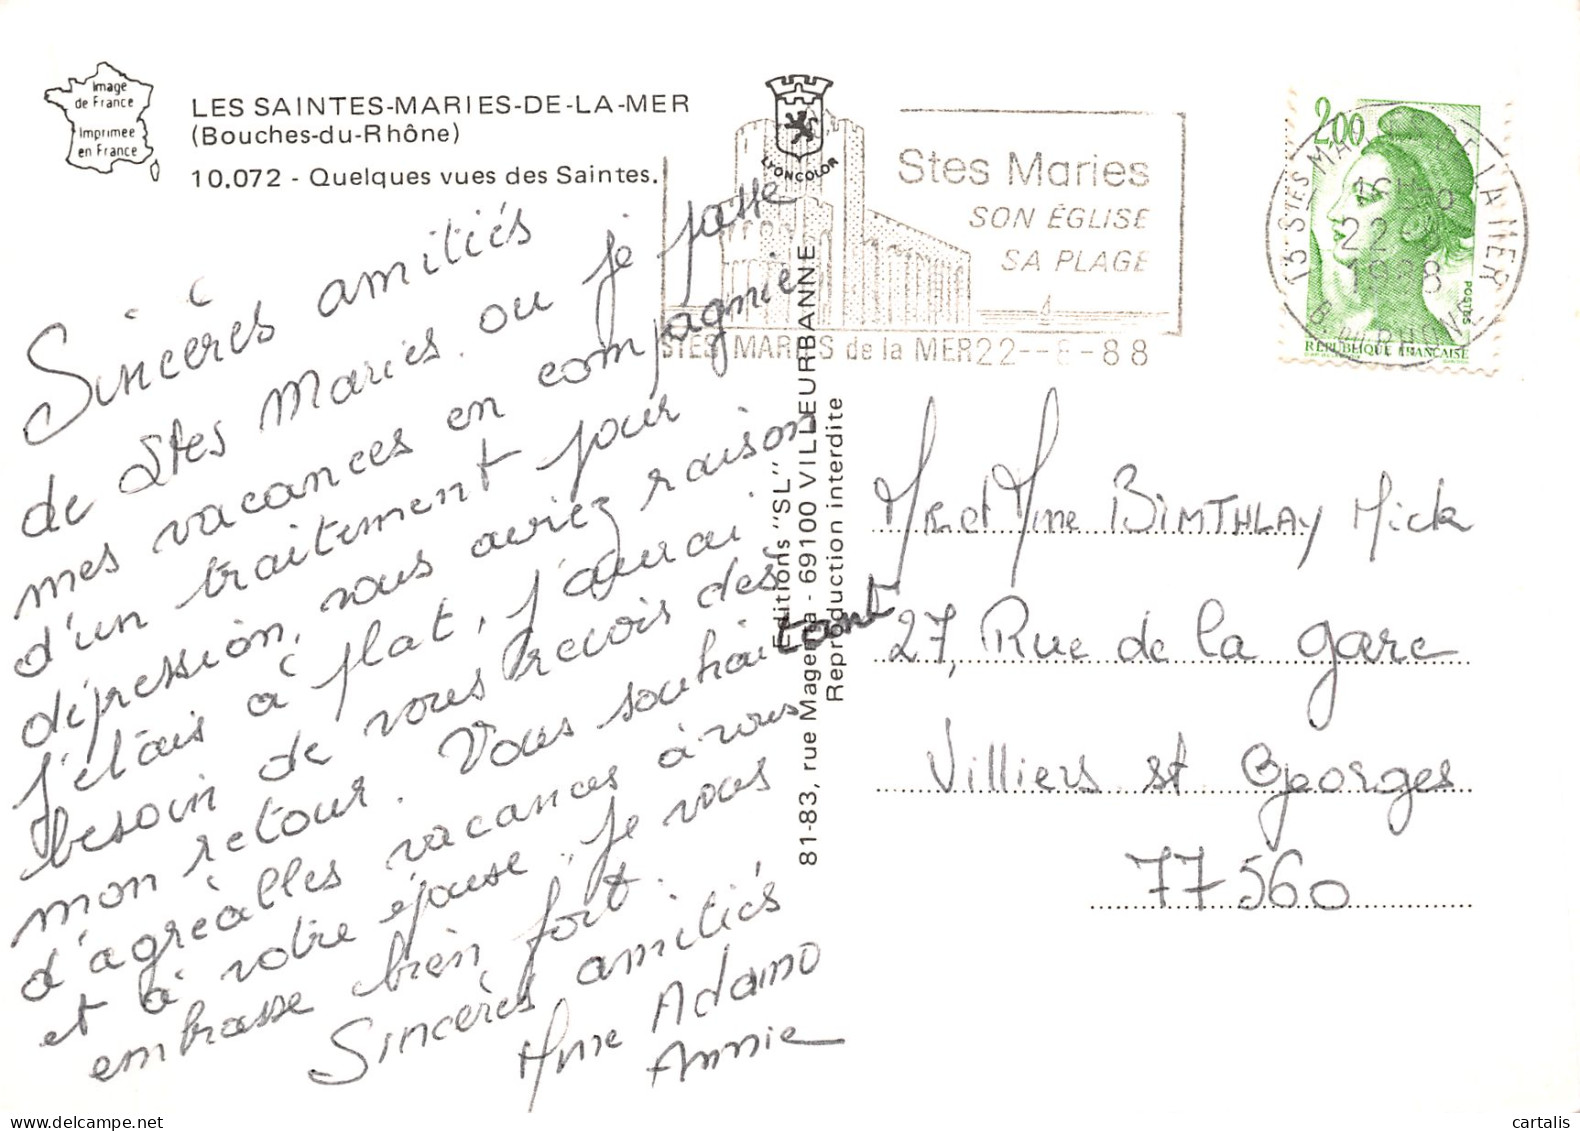 Image
de France
Imprimée
en France
LES SAINTES-MARIES-DE-LA-MER
(Bouches-du-Rhône)
10.072 - Quelques vues des Saintes.
LYONCOLOR
Stes Maries
SON ÉGLISE
SA PLAGE
STES MARIES de la MER 22--8-88
13 STES MARIES DE LA MER
22-8
1988
B. DU RHONE
2,00
POSTES
REPUBLIQUE FRANÇAISE
Sincères amitiés
de Stes Maries ou je passe
mes vacances en compagnie
d'un traitement pour
dépression, vous aviez raison
j'étais à plat, j'aurai
besoin de vous revois dès
mon retour. Vous souhaitant
d'agréalles vacances à vous
et à votre épouse, je vous
embrasse bien fort.
Sincères amitiés
Mme Adamo
Annie
Editions "SL"
81-83, rue Magenta - 69100 VILLEURBANNE
Reproduction interdite
Mr et Mme BIMTHLAY Mick
27, Rue de la gare
Villiers st Georges
77560
cartalis